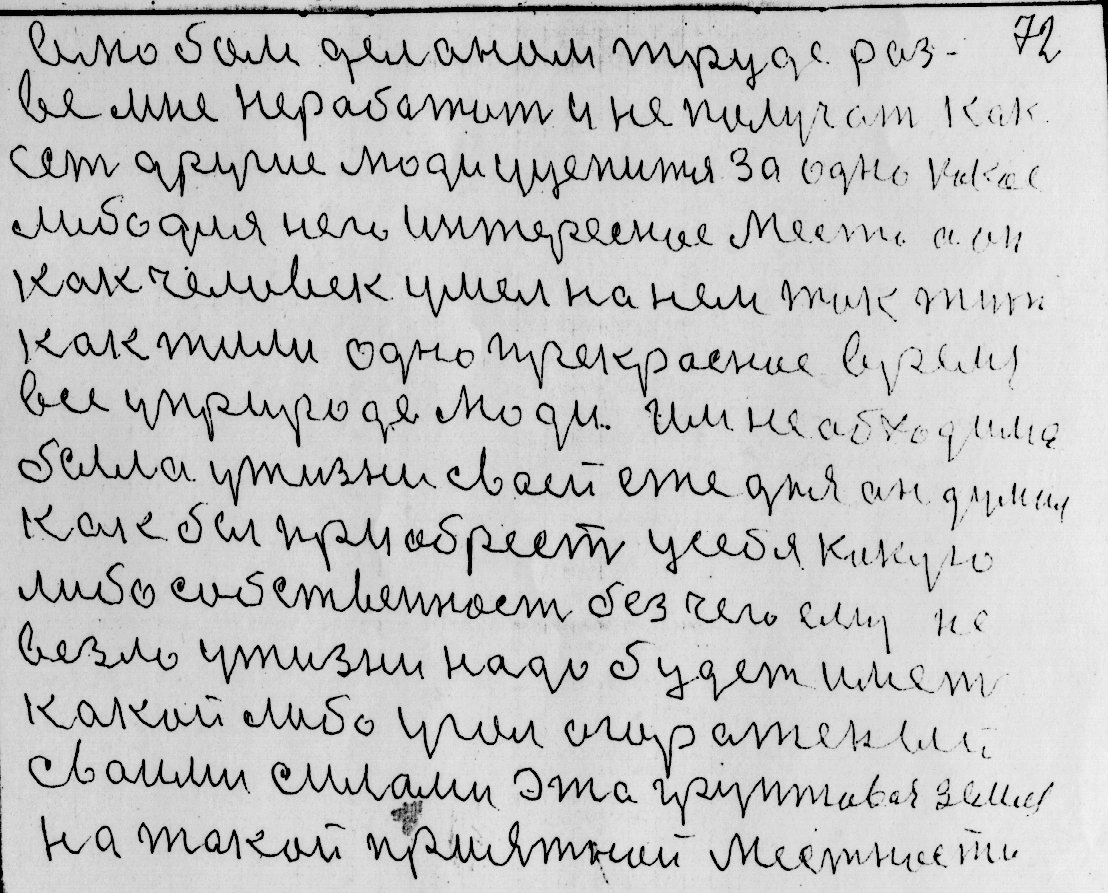 72
само бом деланом труде раз-
ве мне неработот и не получат как
сет другие люди уценитя за одно какое
либо для него интересное место а он
как человек умел на нем так жит
как жили одно прекрасное время
все уприроде люди. Им необходима
бела ужизни сваей еже дня ан думал
как бел приобрест усебя какую
либо собственност без чего ему не
везло ужизни надо будет имет
какой либо угол огороженый
сваими силами эта грунтовая земля
на такой приятной местности